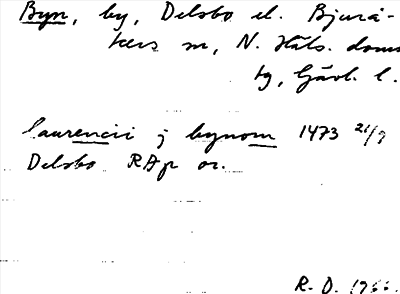 Byn, by, Delsbo el. Bjurå-
kers sn, N. Häls. doms
tg, Gävl. l.
laurencii j bynom 1473 21/9
Delsbo RAp or.
R. O. 1966.